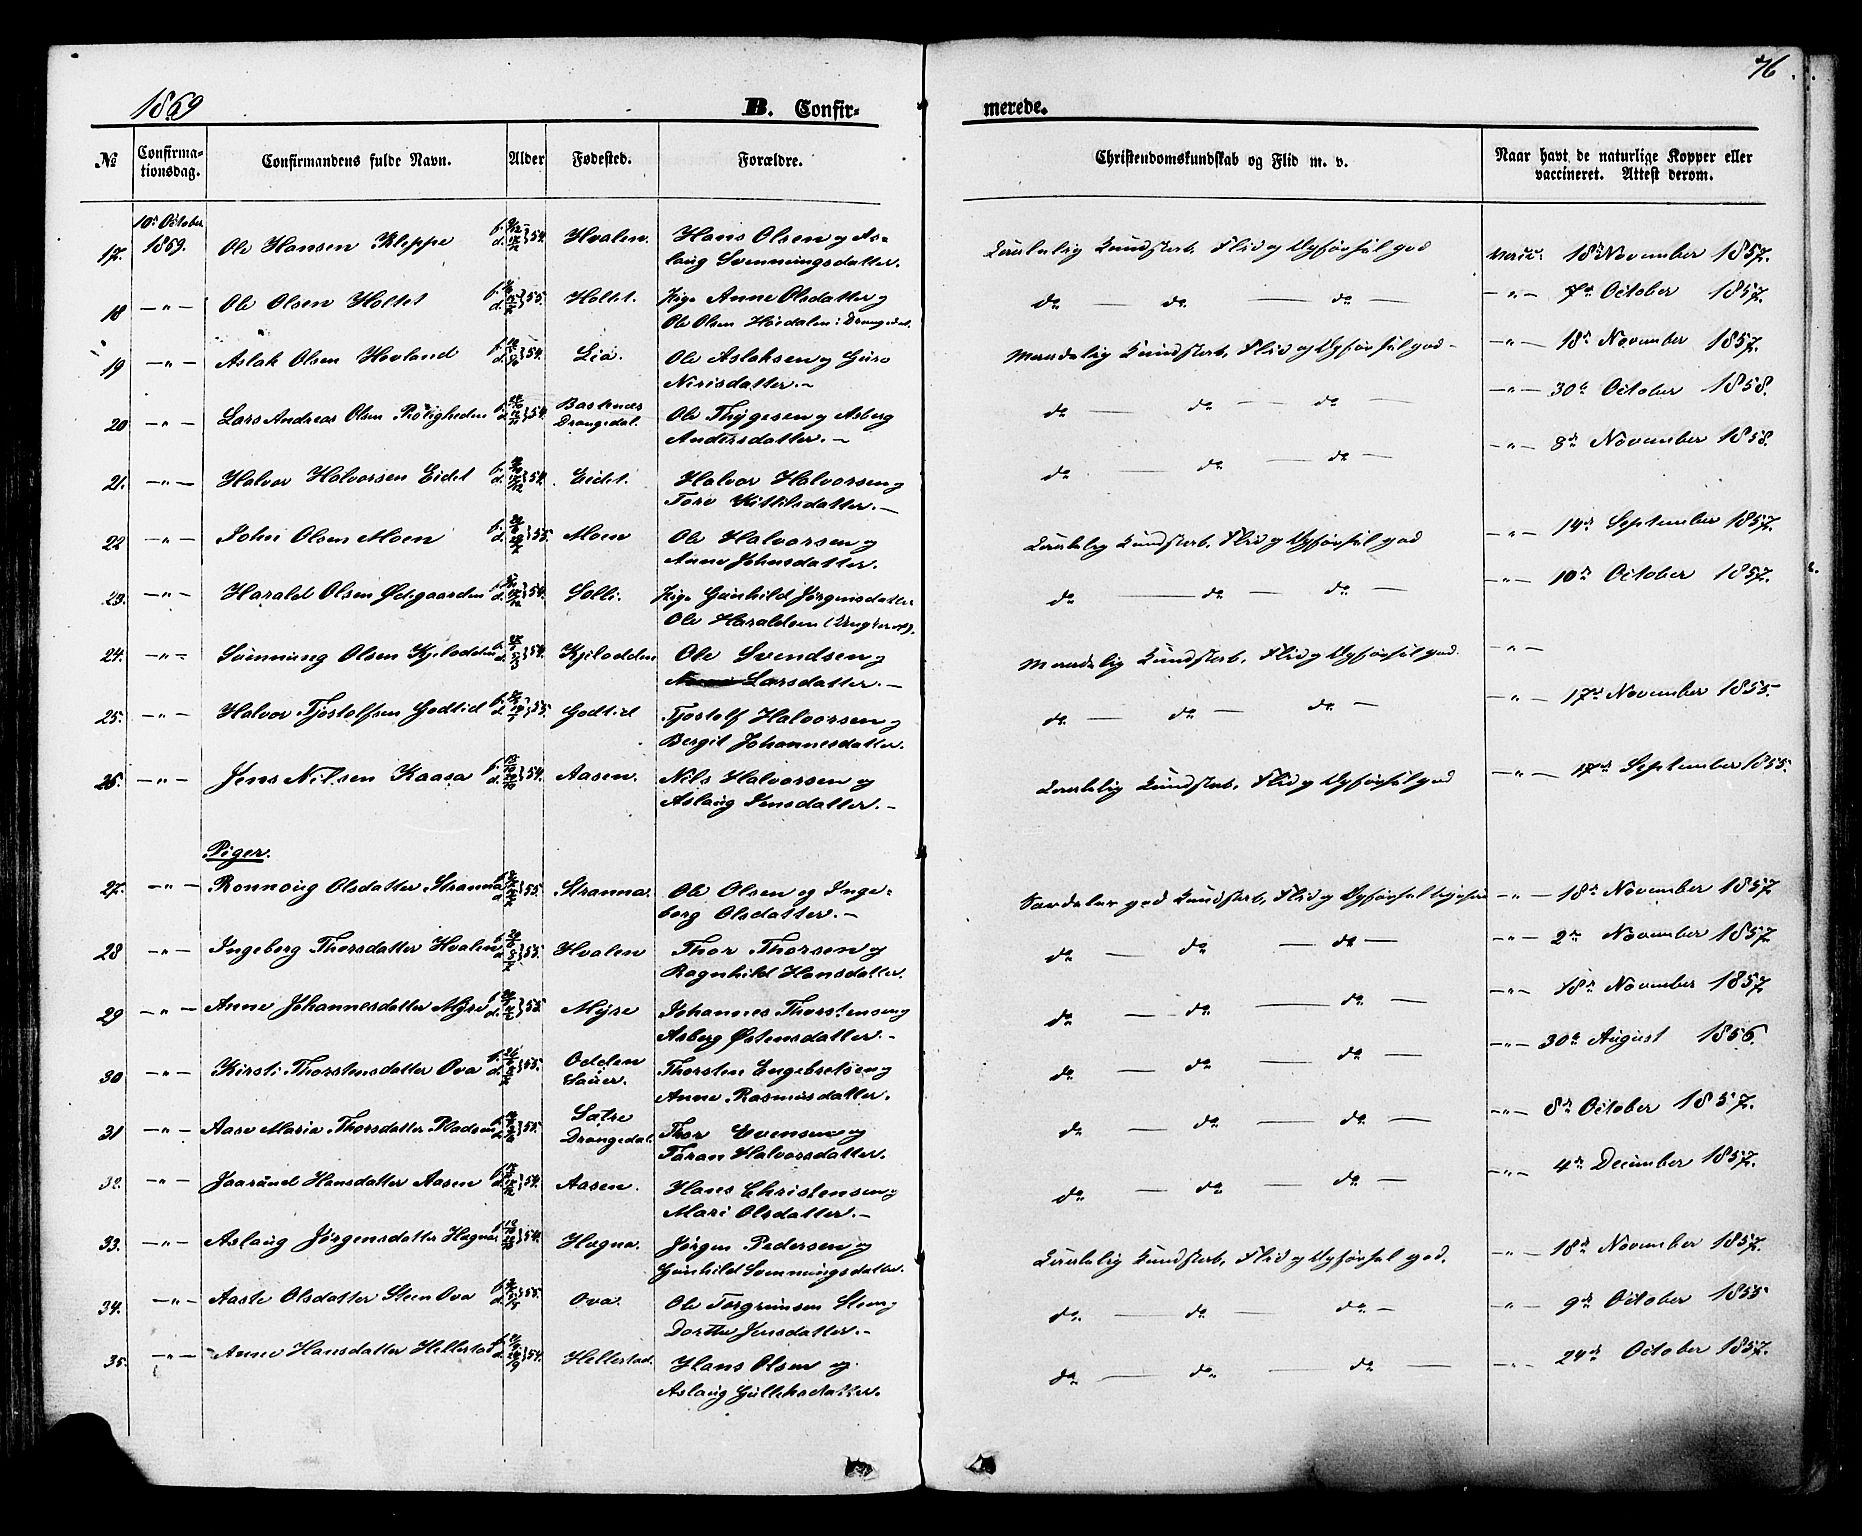 76.
1869
B. Confir-
merede.
№
Confirma-
tionsdag.
Confirmandens fulde Navn.
Alder
Fødested.
Forældre.
Christendomskundskab og Flid m. v.
Naar havt de naturlige Kopper eller
vaccineret. Attest derom.
17. 10de October 1869. Ole Hansen Kleppe 54. Hvalen. Hans Olsen og As-
laug Svenningsdatter. Kundskab, Flid og Opførsel god 18de November 1857.
18 —"— Ole Olsen Holtet 55. Holtet. Pige Anne Olsdatter og
Ole Olsen i Drangedal. do — do — do — —"— 7de October 1857.
19 —"— Aslak Olsen Hovland 54. Lia. Ole Aslaksen og Guro
Nirisdatter.— Kundskab, Flid og Opførsel god —"— 18de November 1857.
20 —"— Lars Andreas Olsen Roligheden 54. Bostenæs
Drangedal. Ole Thygesen og Asberg
Andersdatter.— do — do — do — —"— 30te October 1858.
21. —"— Halvor Halvorsen Eidet 54. Eidet. Halvor Halvorsen og
Tore Kittilsdatter.— do — do — do — —"— 8de November 1858.
22 —"— John Olsen Moen 55. Moen Ole Halvorsen og
Anne Johnsdatter. Kundskab, Flid og Opførsel god —"— 14de September 1857.
23. —"— Harald Olsen Ødegaarden 54. Solli. Pige Gunhild Jørgensdatter
Ole Haraldsen do — do — do — —"— 10de October 1857.
24. —"— Svenning Olsen Kjelodden 54. Kjelodden Ole Svendsen og
Larsdatter.— Kundskab, Flid og Opførsel god. —"—
25. —"— Halvor Tjostolfsen Godtid 55. Godtid Tjostolf Halvorsen og
Bergit Johannesdatter. do — do — do — —"— 17de November 1855.
26. —"— Jens Nilsen Kaasa 54. Aasen. Nils Halvorsen og
Aslaug Jensdatter.— Kundskab, Flid og Opførsel god —"— 17de September 1855.
Piger.
27. —"— Ronnoug Olsdatter Stranna 55. Stranna. Ole Olsen og Inge-
borg Olsdatter.— god Kundskab, Flid og Opførsel —"— 18de November 1857
28 —"— Ingeborg Thorsdatter Hvalen 55. Hvalen Thor Thorsen og
Ragnhild Hansdatter. do — do — do — —"— 2den November 1857
29 —"— Anne Johannesdatter Myre 55 Myre Johannes Thorstensen og
Asberg Østensdatter.— do — do — do — —"— 18de November 1857
30 —"— Kirsti Thorstensdatter Ova 55. Odden
Sauer. Thorsten Engebretsen og
Anne Rasmusdatter. do — do — do — —"— 30te August 1856.
31 —"— Aase Marie Thorsdatter 55. Sætre
Drangedal. Thor Evensen og
Taran Halvorsdatter. do — do — do — —"— 8de October 1857.
32. —"— Jaarand Hansdatter Aasen 54. Aasen. Hans Christensen og
Mari Olsdatter.— do — do — do — —"— 4de December 1857.
33. —"— Aslaug Jørgensdatter Hagna 54. Hagna. Jørgen Pedersen og
Gunhild Svenningsdatter. Kundskab, Flid og Opførsel god. —"— 18de November 1857.
34. —"— Aaste Olsdatter Steen Ova 55. Ova. Ole Torgrimsen Steen og
Dorthe Jensdatter.— do — do — do — —"— 9de October 1855
35. —"— Anne Hansdatter Hellestad 54. Hellestad. Hans Olsen og
Aslaug Gulleksdatter. do — do — do — —"— 24de October 1857.